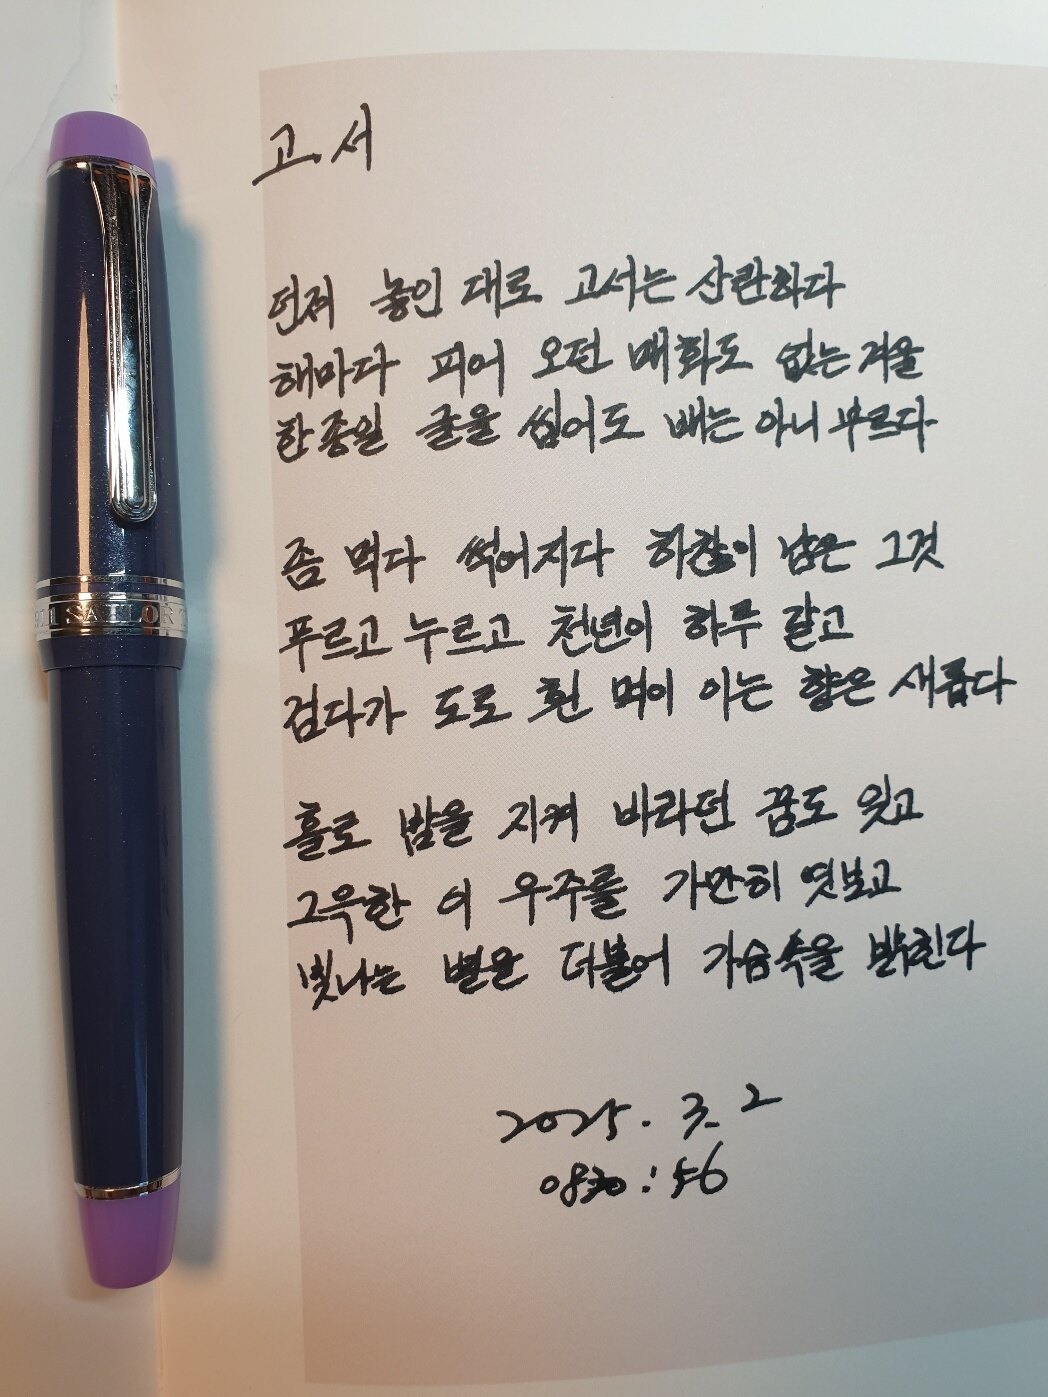 고. 서
던져 놓인 대로 고서는 산란하다
해마다 피어 오던 매화도 없는 겨울
한종일 글을 씹어도 배는 아니 부르다
좀 먹다 썩어지다 하찮이 남은 그것
푸르고 누르고 천년이 하루 같고
검다가 도로 흰 먹이 이는 향은 새롭다
홀로 밤을 지켜 바라던 꿈도 잊고
그윽한 이 우주를 가만히 엿보고
빛나는 별을 더불어 가슴속을 밝힌다
2025. 3. 2
0830 : 56
SAILOR